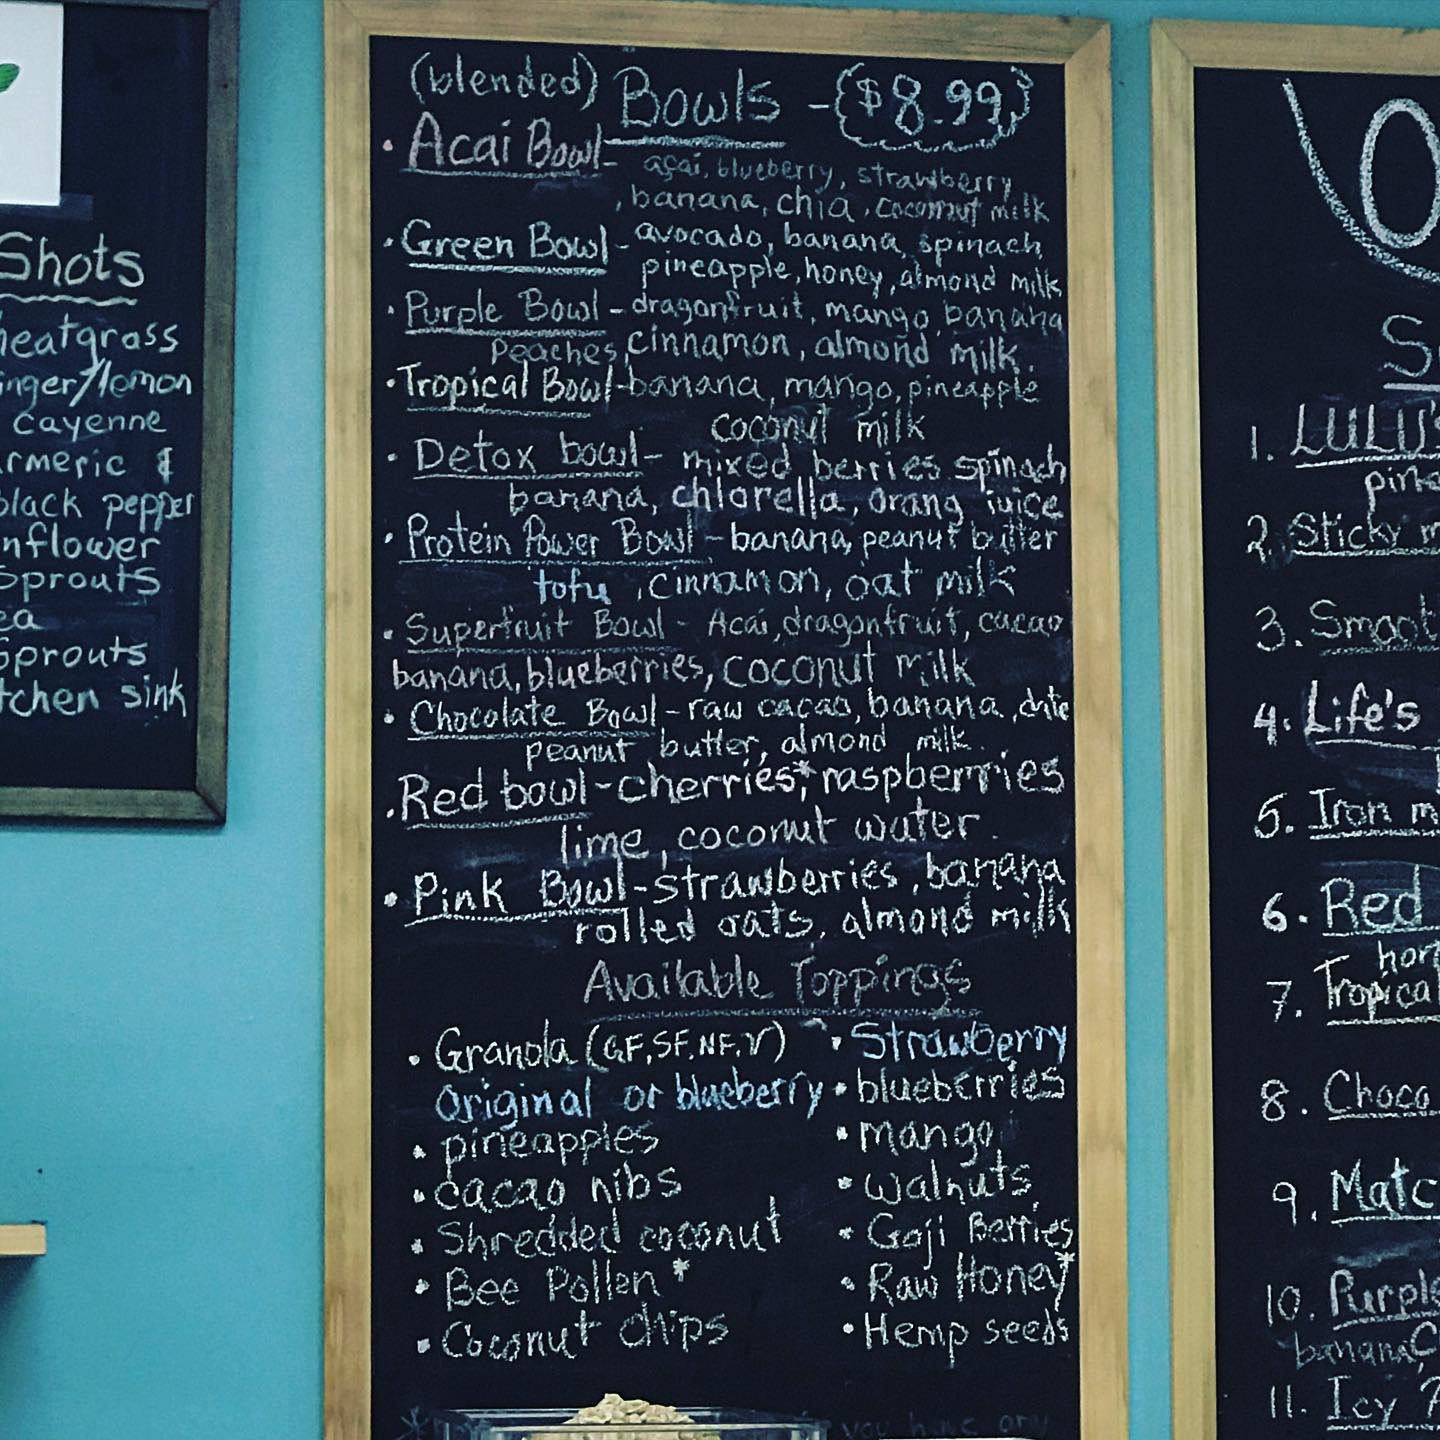 Shots
heatgrass
inger/lemon
cayenne
rmeric &
black pepper
nflower
Sprouts
ea
Sprouts
tchen sink
(blended) Bowls - $8.99
• Acai Bowl - açai, blueberry, strawberry
, banana, chia, coconut milk
• Green Bowl - avocado, banana, spinach
pineapple, honey, almond milk
• Purple Bowl - dragonfruit, mango, banana
Peaches, cinnamon, almond milk.
• Tropical Bowl - banana, mango, pineapple
coconut milk
• Detox bowl - mixed berries spinach
banana, chlorella, orang juice
• Protein Power Bowl - banana, peanut butter
tofu, cinnamon, oat milk
• Superfruit Bowl - Acai, dragonfruit, cacao
banana, blueberries, coconut milk
• Chocolate Bowl - raw cacao, banana, date
peanut butter, almond milk.
• Red bowl - cherries*, raspberries
lime, coconut water.
• Pink Bowl - strawberries, banana
rolled oats, almond milk
Available Toppings
• Granola (GF, SF, NF, V)
Original or blueberry
• pineapples
• cacao nibs
• Shredded coconut
• Bee Pollen*
• Coconut chips
• Strawberry
• blueberries
• mango
• walnuts
• Goji Berries
• Raw Honey*
• Hemp seeds
you have any
O
S
1. LULU's
pine
2. Sticky m
3. Smoot
4. Life's
5. Iron m
6. Red
hon
7. Tropical
8. Choco
9. Matc
10. Purple
banana, C
11. Icy